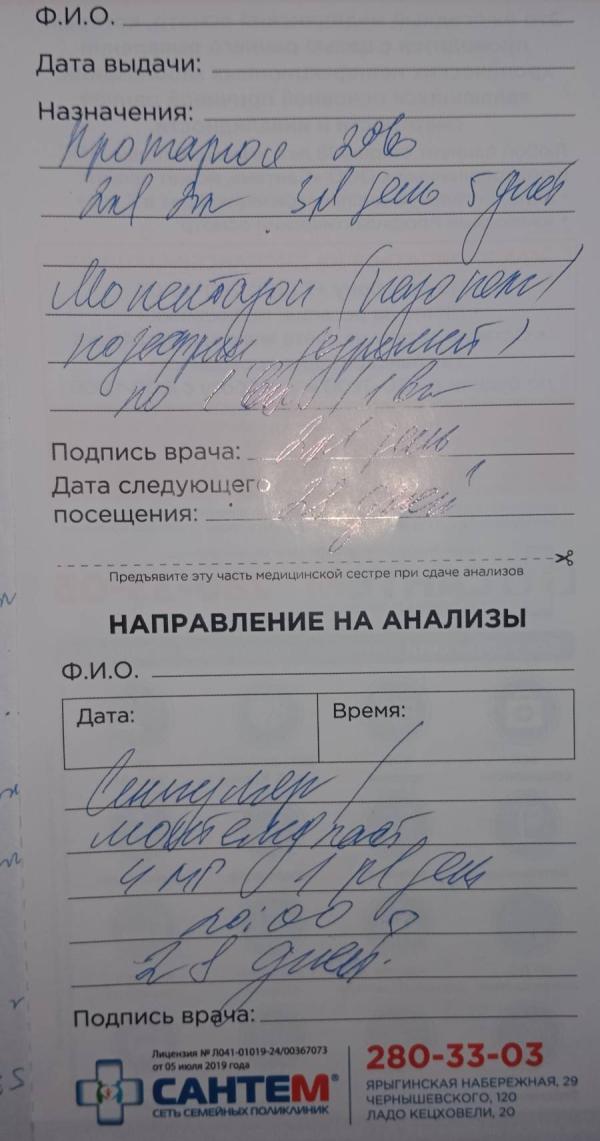 Ф.И.О.
Дата выдачи:
Назначения:
Протаргол 2%
2кап 3р/день 5 дней
Мометазон (
) 
по 1 вп / 1 вп
Подпись врача: 2р/день
Дата следующего
посещения: дней
Предъявите эту часть медицинской сестре при сдаче анализов
НАПРАВЛЕНИЕ НА АНАЛИЗЫ
Ф.И.О.
Дата: Время:
Сингуляр /
монтелукаст
4 мг 1 р/день
28 дней.
Подпись врача:
Лицензия № Л041-01019-24/00367073
от 05 июля 2019 года
САНТЕМ®
СЕТЬ СЕМЕЙНЫХ ПОЛИКЛИНИК
280-33-03
ЯРЫГИНСКАЯ НАБЕРЕЖНАЯ, 29
ЧЕРНЫШЕВСКОГО, 120
ЛАДО КЕЦХОВЕЛИ, 20